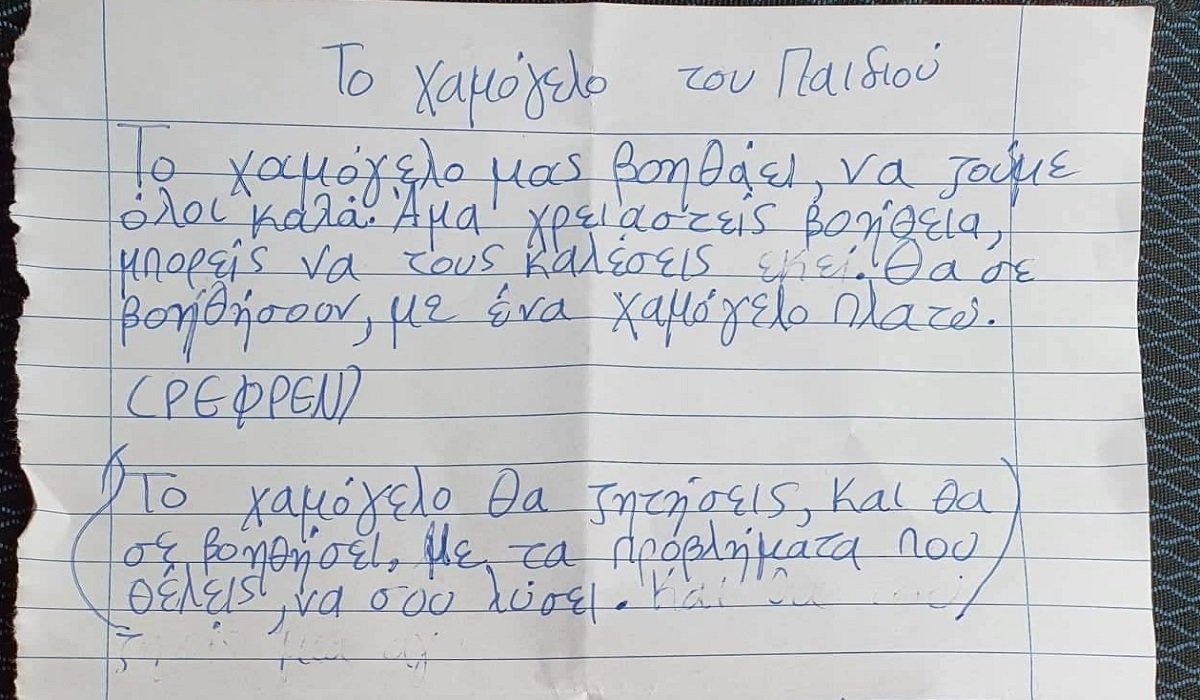 Το χαμόγελο του Παιδιού
Το χαμόγελο μας βοηθάει, να ζούμε
όλοι καλά. Άμα χρειαστείς βοήθεια,
μπορείς να τους καλέσεις εκεί. Θα σε
βοηθήσουν, με ένα χαμόγελο πλατύ.
(ΡΕΦΡΕΝ)
Το χαμόγελο θα ζητήσεις, και θα
σε βοηθήσει. Με τα προβλήματα που
θέλεις, να σου λύσει. Και